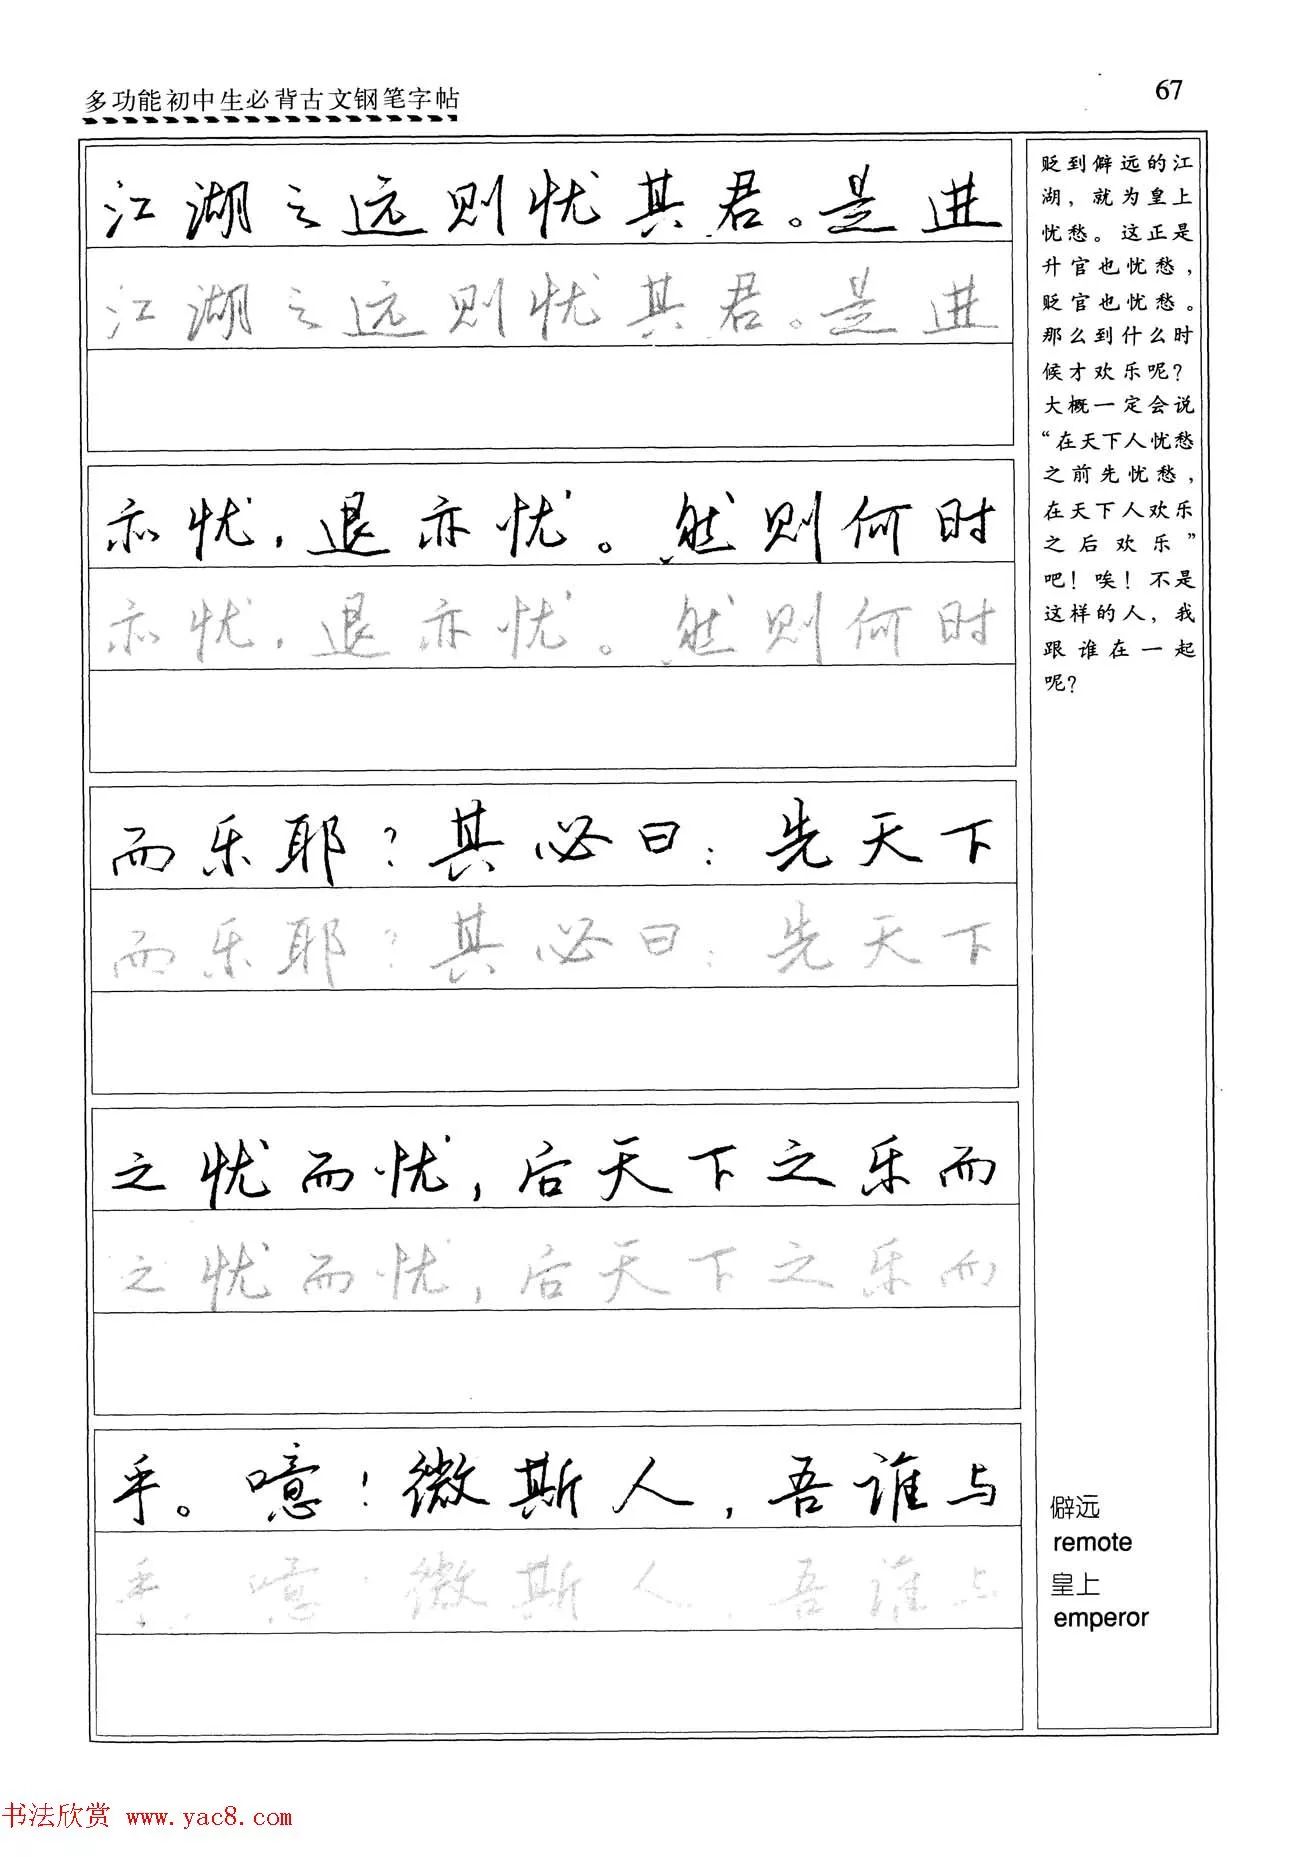 多功能初中生必背古文钢笔字帖
67
江湖之远则忧其君。是进
江湖之远则忧其君。是进
亦忧，退亦忧。然则何时
亦忧，退亦忧。然则何时
而乐耶？其必曰：先天下
而乐耶？其必曰：先天下
之忧而忧，后天下之乐而
之忧而忧，后天下之乐而
乎。噫！微斯人，吾谁与
乎。噫！微斯人，吾谁与
贬到僻远的江
湖，就为皇上
忧愁。这正是
升官也忧愁，
贬官也忧愁。
那么到什么时
候才欢乐呢？
大概一定会说
“在天下人忧愁
之前先忧愁，
在天下人欢乐
之后欢乐”
吧！唉！不是
这样的人，我
跟谁在一起
呢？
僻远
remote
皇上
emperor
书法欣赏 www.yac8.com